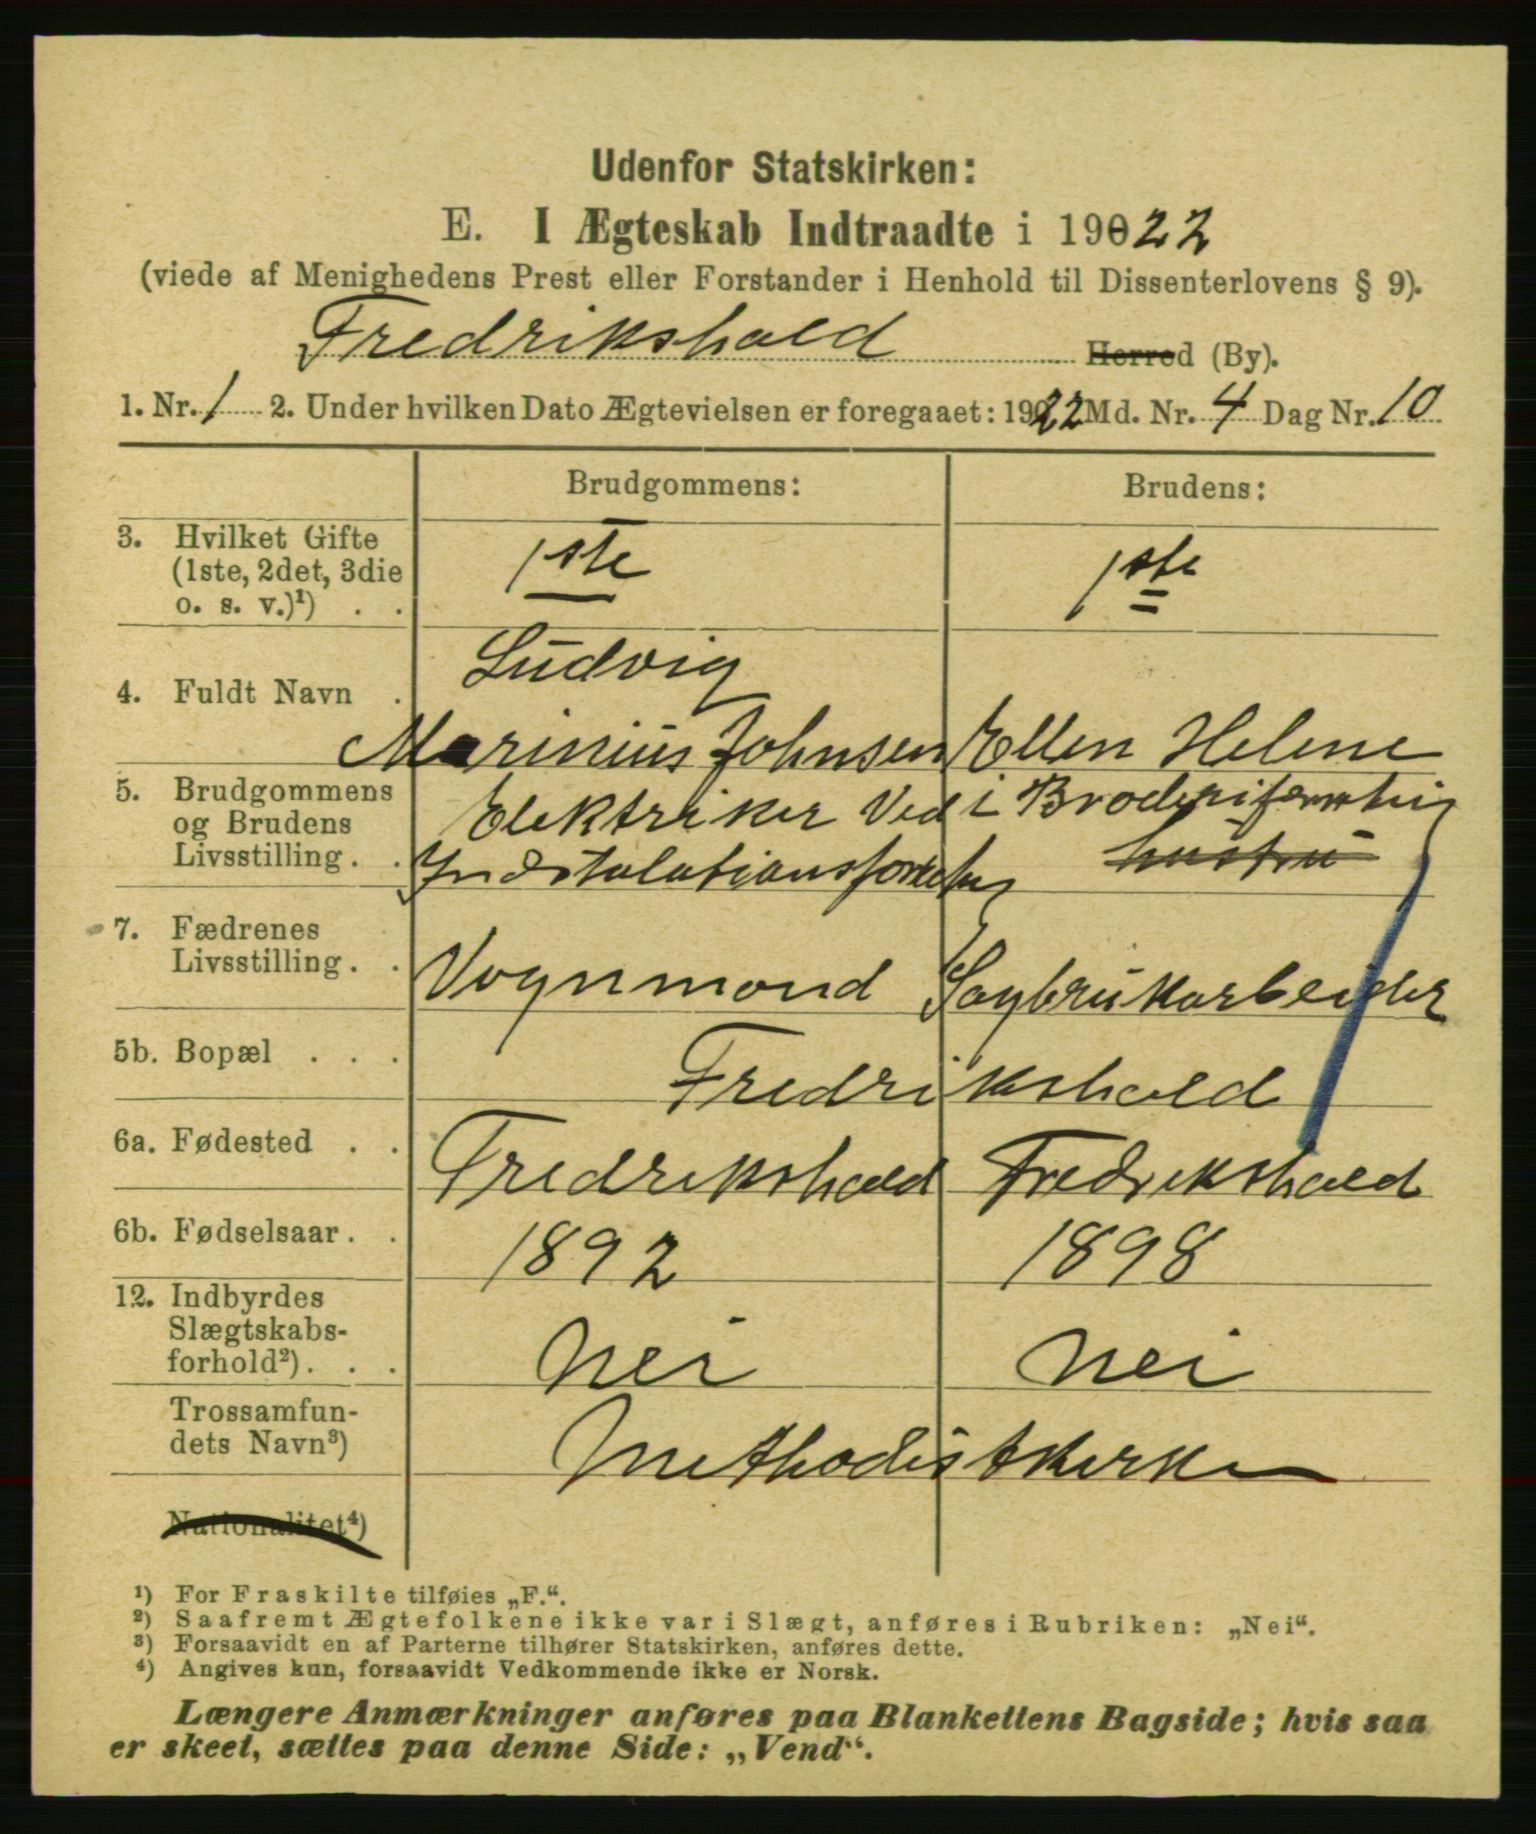 Udenfor Statskirken:
E. I Ægteskab Indtraadte i 19022
(viede af Menighedens Prest eller Forstander i Henhold til Dissenterlovens § 9).
Fredrikshald Herred (By).
1. Nr. 1 2. Under hvilken Dato Ægtevielsen er foregaaet: 1922 Md. Nr. 4 Dag Nr. 10
Brudgommens: Brudens:
3. Hvilket Gifte
(1ste, 2det, 3die
o. s. v.)¹) . .
1ste 1ste
4. Fuldt Navn .
Ludvig
Marinius Johnsen Ellen Helene
5. Brudgommens
og Brudens
Livsstilling. .
Elektriker Ved i
hustru
7. Fædrenes
Livsstilling. .
Vognmand Sagbrukarbeider
5b. Bopæl . . .
Fredrikshald
6a. Fødested . .
Fredrikshald Fredrikshald
6b. Fødselsaar. .
1892 1898
12. Indbyrdes
Slægtskabs-
forhold²). . .
Nei Nei
Trossamfun-
dets Navn³)
Methodistkirken
Nationalitet⁴)
¹) For Fraskilte tilføies „F.“.
²) Saafremt Ægtefolkene ikke var i Slægt, anføres i Rubriken: „Nei“.
³) Forsaavidt en af Parterne tilhører Statskirken, anføres dette.
⁴) Angives kun, forsaavidt Vedkommende ikke er Norsk.
Længere Anmærkninger anføres paa Blankettens Bagside; hvis saa
er skeet, sættes paa denne Side: „Vend“.